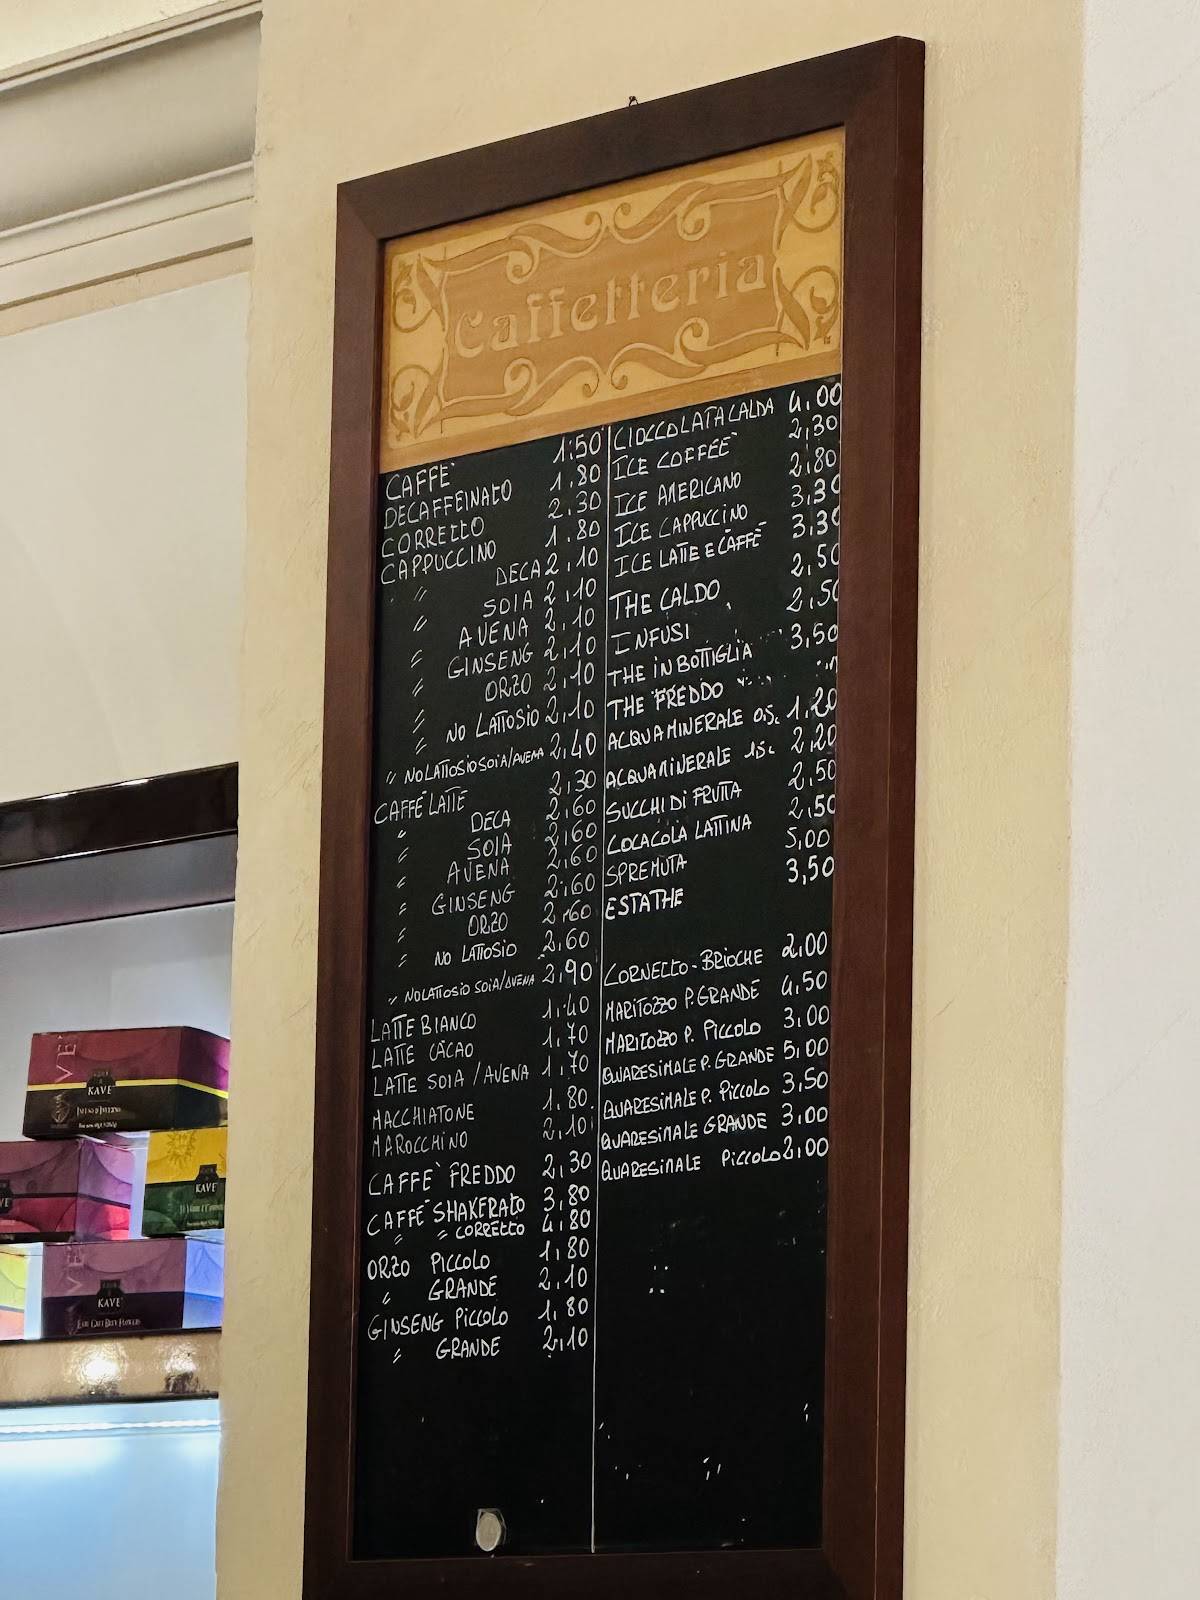 Caffetteria
CAFFE' 1:50
DECAFFEINATO 1.80
CORRETTO 2.30
CAPPUCCINO 1.80
" DECA 2,10
" SOIA 2,10
" AVENA 2,10
" GINSENG 2,10
" ORZO 2,10
" NO LATTOSIO 2,10
" NO LATTOSIO SOIA/AVENA 2,40
CAFFE' LATTE 2,30
" DECA 2,60
" SOIA 2,60
" AVENA 2,60
" GINSENG 2,60
" ORZO 2,60
" NO LATTOSIO 2,60
" NO LATTOSIO SOIA/AVENA 2,90
LATTE BIANCO 1,40
LATTE CACAO 1,70
LATTE SOIA / AVENA 1,70
MACCHIATONE 1,80
MAROCCHINO 2,10
CAFFE' FREDDO 2,30
CAFFE' SHAKERATO 3,80
" " CORRETTO 4,80
ORZO PICCOLO 1,80
" GRANDE 2,10
GINSENG PICCOLO 1,80
" GRANDE 2,10
CIOCCOLATA CALDA 4,00
ICE COFFEE' 2,30
ICE AMERICANO 2,80
ICE CAPPUCCINO 3,30
ICE LATTE E CAFFE' 3,30
THE CALDO 2,50
INFUSI 2,50
THE IN BOTTIGLIA 3,50
THE FREDDO
ACQUA MINERALE 0,5L 1,20
ACQUA MINERALE 1,5L 2,20
SUCCHI DI FRUTTA 2,50
COCACOLA LATTINA 2,50
SPREMUTA 5,00
ESTATHE 3,50
CORNETTO - BRIOCHE 2,00
MARITOZZO P. GRANDE 4,50
MARITOZZO P. PICCOLO 3,00
QUARESIMALE P. GRANDE 5,00
QUARESIMALE P. PICCOLO 3,50
QUARESIMALE GRANDE 3,00
QUARESIMALE PICCOLO 2,00
KAVE'
KAVE'
KAVE'